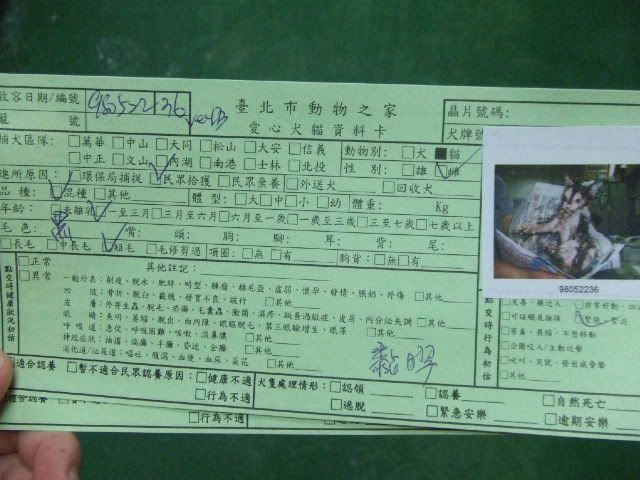 臺北市動物之家
愛心犬貓資料卡
收容日期/編號
籠 號
晶片號碼:
犬牌號
捕犬區隊: □萬華 □中山 □大同 □松山 □大安 □信義
□中正 □文山 □內湖 □南港 □士林 □北投
動物別: □犬 ■貓
性 別: □雄 □雌
進所原因: □環保局捕捉 □民眾拾獲 □民眾棄養 □外送犬 □回收犬
品 種: □混種 □其他
體 型: □大 □中 □小 □幼 體重: Kg
年齡: □未離乳 □一至三月 □三月至六月 □六月至一歲 □一歲至三歲 □三至七歲 □七歲以上
毛 色: 黑 嘴: 頭: 胸: 腳: 耳: 背: 尾:
□長毛 □中長毛 □短毛 □毛修剪過 項圈: □無 □有 胸背: □無 □有
98052236
點交時健康狀況初估
□正常
□異常
其他註記:
一般外表: 削瘦、脫水、肥胖、畸型、腫瘤、赫尼亞、虛弱、懷孕、發情、脹奶、外傷 □其他
四 肢: 骨折、脫臼、截肢、發育不良、跛行 □其他
皮 膚: 外寄生蟲、脫毛、疥癬、毛囊蟲、黴菌、濕疹、跳蚤過敏症、皮屑、內分泌失調 □其他
眼 睛: 失明、萎縮、脫出、白內障、眼瞼脫毛、第三眼瞼增生、眼屎 □其他
呼吸道: 急促、呼吸困難、咳嗽、流鼻膿 □其他
神經症狀: 抽搐、偏癱、半癱、昏迷、全癱 □其他
消化道/泌尿道: 嘔吐、腹瀉、血便、血尿、尿花 □其他
點交時行為初估
□友善、親近人
□害羞、畏縮、不想移動
□企圖咬人/主動攻擊
□吠叫、哭號、發出威脅聲
□其他
□適合認養 □暫不適合民眾認養原因: □健康不適
□行為不適
犬隻處理情形: □認領 □認養 □自然死亡
□逃脫 □緊急安樂 □逾期安樂
□行為不適